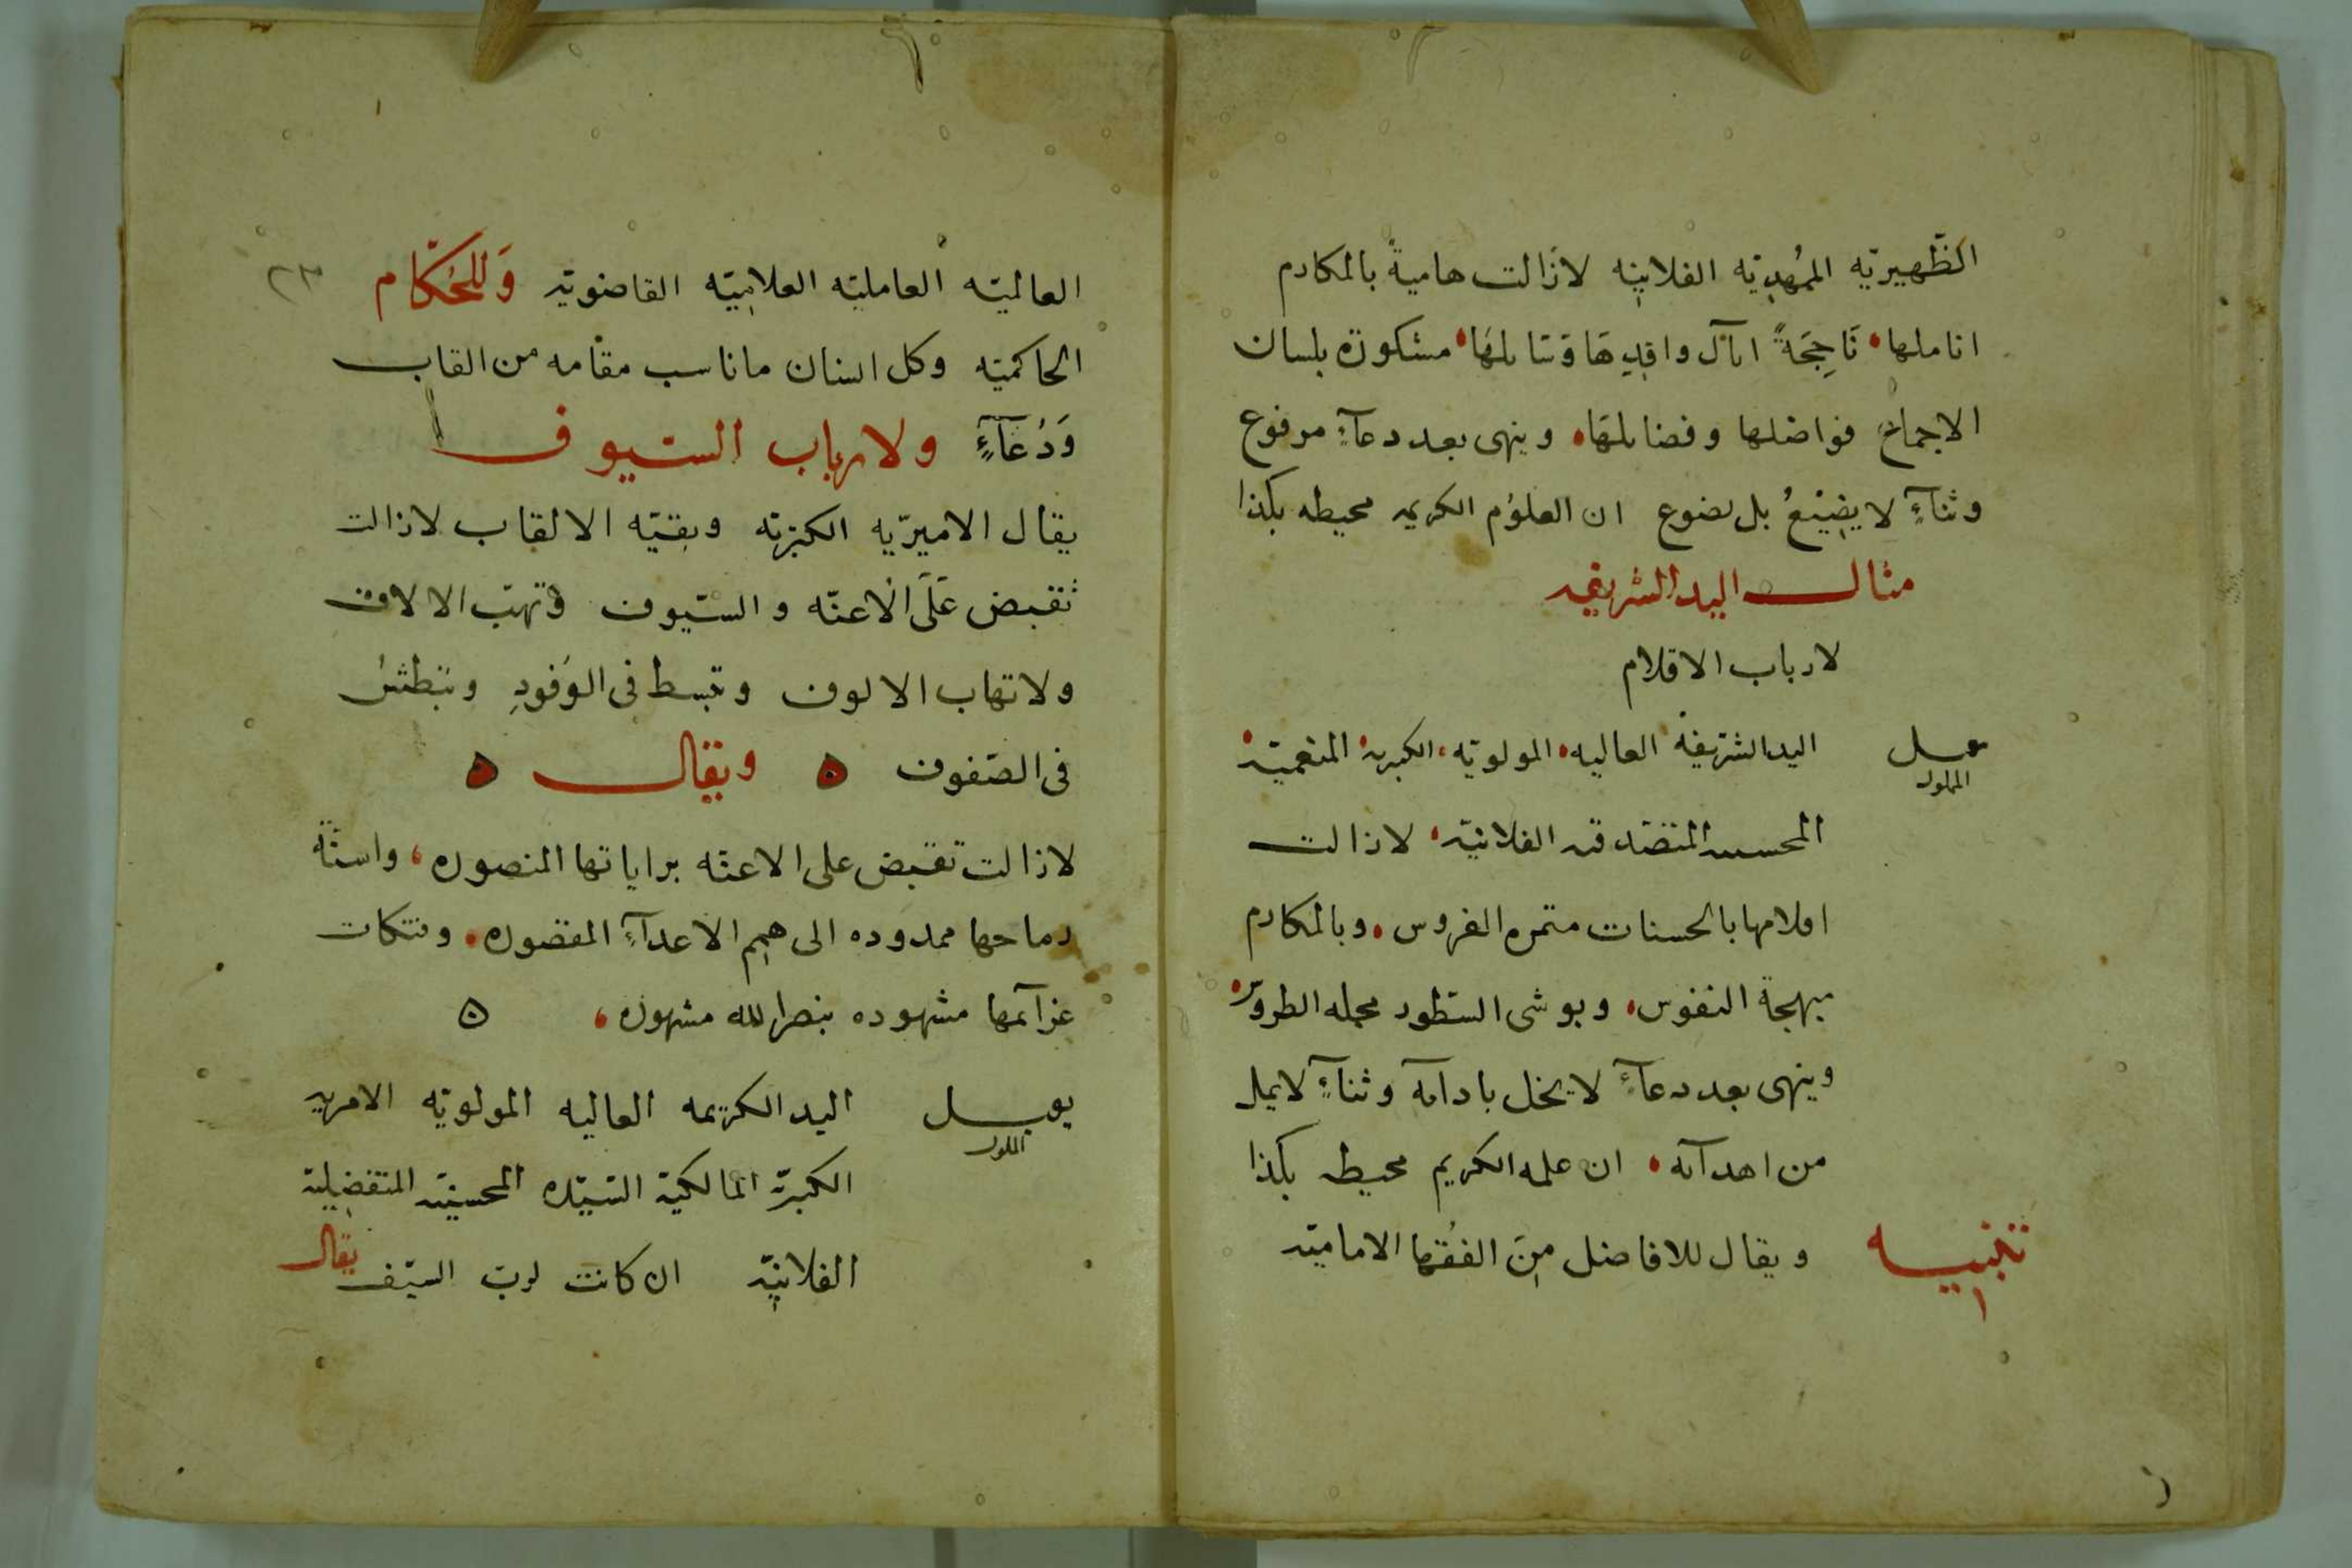 الظّهيريّه الممُهديّه الفلانيه لازالت هاميةً بالمكارم
اناملها • نَاجِحَةً امآل وافدِيهَا وَسَائلهَا • مشكورة بلسان
الاجماع فواضلها وفضائلهَا • وينهى بعد دعآءٍ مرفوع
وثنآءٍ لا يضِيْعُ بل يضوع ان العلوُم الكريمه محيطه بكذا
مثال اليد الشريفه
لارباب الاقلام
يقبل المملوك اليد الشريفه العاليه • المولويّه • الكبريه • المنعميّه •
المحسنيه المتصدقيه الفلانيّه • لازالت
اقلامها بالحسنات مثمره الغروس • وبالمكارم
مبهجة النفوس • وبوشى السّطور مجمله الطروس •
وينهى بعد دعآءٍ لا يخل بادآئه وثنآءٍ لا يمل
من اهدآئه • ان علمه الكريم محيط بكذا
تنبيه ويقال للافاضل مِنَ الفُقها الاماميّه
٢٣
العالميّه العامليّه العلاميّه القاضويّه وَللحُكّام
الحاكميّه وكل انسان ما ناسب مقامه من القاب
وَدُعَآءٍ ولارباب السّيوف
يقال الاميريّه الكبيريّه وبقيّه الالقاب لازالت
تقبض عَلَى الاعنّه والسّيوف وتهب الالاف
ولا تهاب الالوف وتبسط فى الوُفودِ وتبطشُ
فى الصّفوف ه ويقال ه
لازالت تقبض على الاعنّه براياتها المنصوره ، واسنّة
رماحها ممدوده الى مهج الاعدآءِ المقصوره • وفتكات
عزآئمها مشهوده بنصر الله مشهوره ، ه
يقبل المملوك اليد الكريمه العاليه المولويّه الاميريه
الكبيريّه المالكيّة السّيّديه المحسنيّه المتفضيلية
الفلانيّه ان كانت لرب السّيف يقال